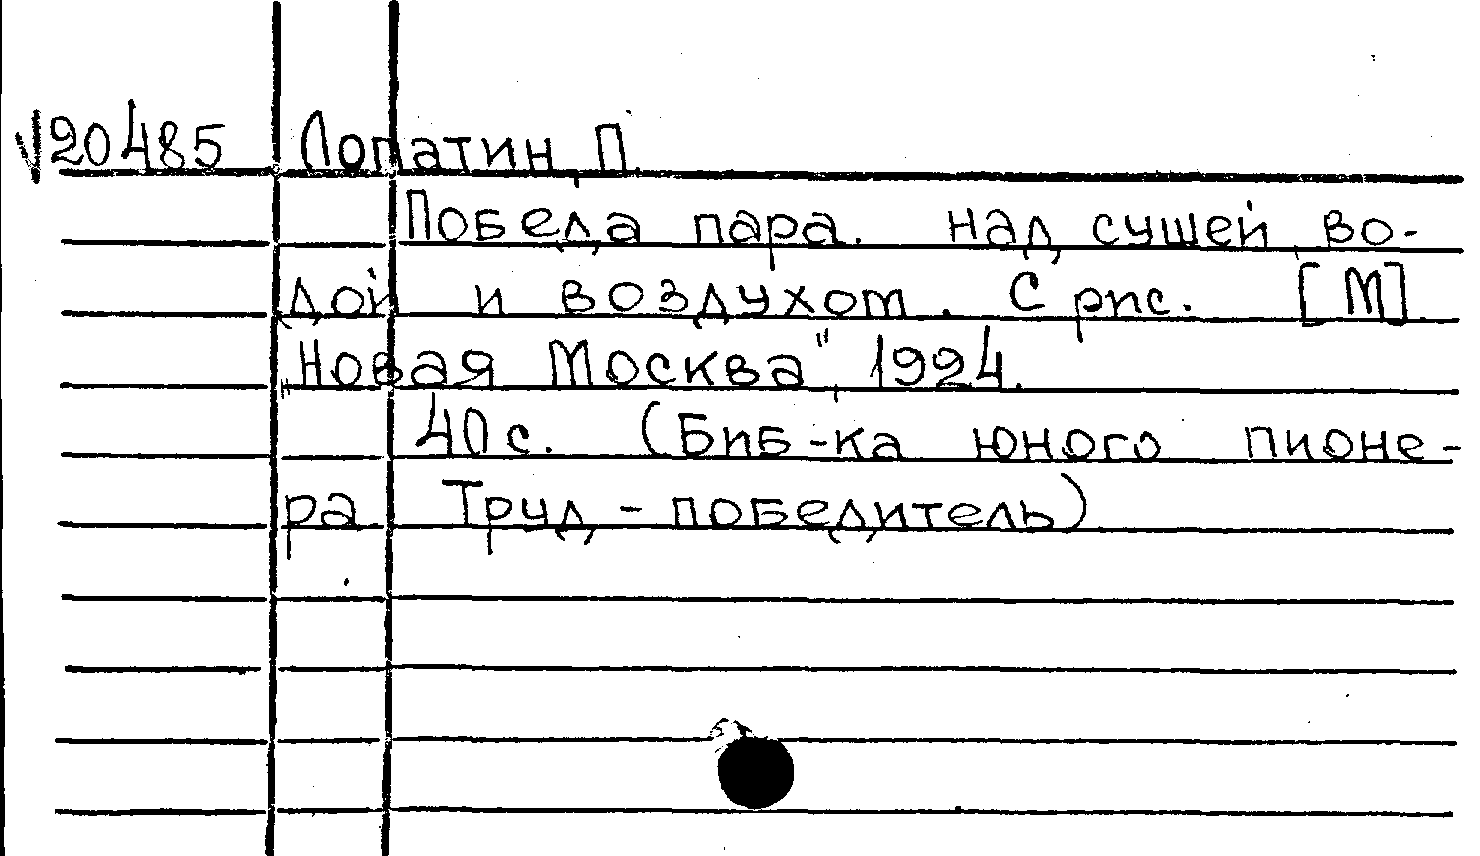 √20485 Лопатин, П.
Победа пара. над сушей, во-
дой и воздухом. С рис. [М].
„Новая Москва", 1924.
40 с. (Биб-ка юного пионе-
ра Труд - победитель)